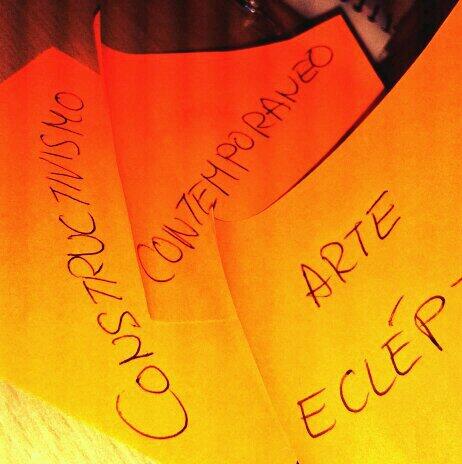 CONSTRUCTIVISMO
CONTEMPORANEO
ARTE
ECLÉP